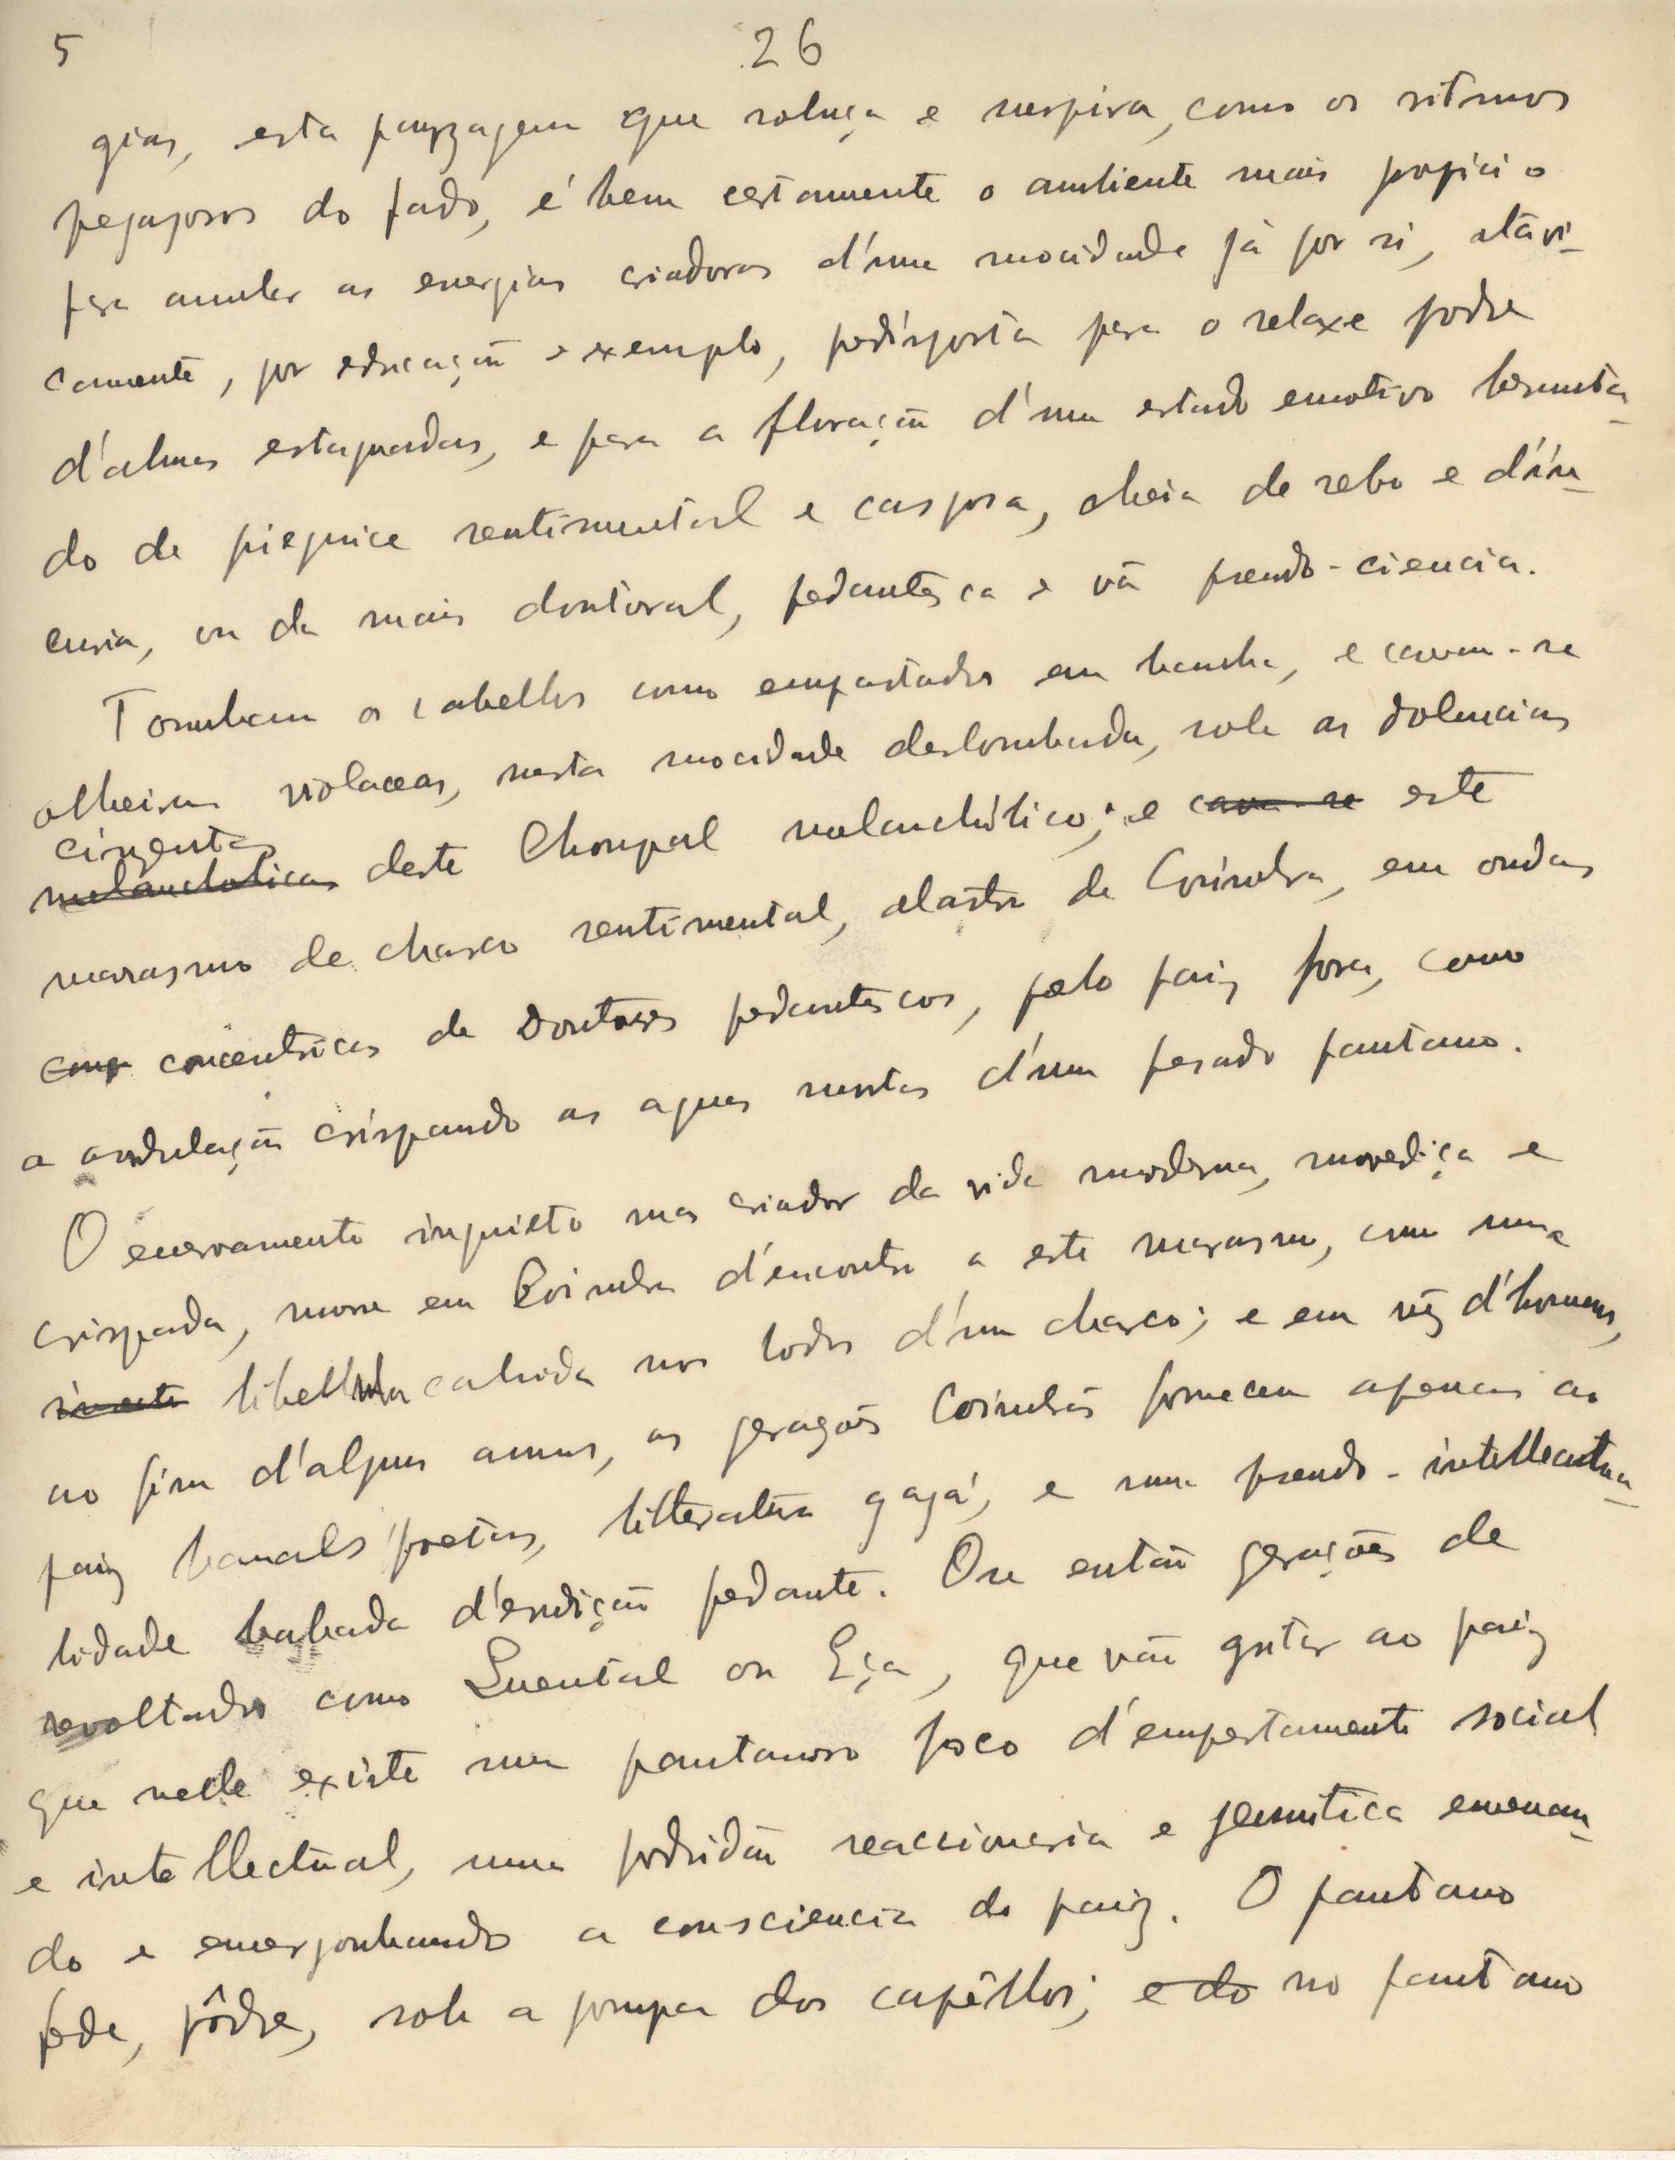 5
26
gias, esta payzagem que soluça e suspira, como os ritmos
pegajosos do fado, é bem certamente o ambiente mais propicio
para annular as energias criadoras d'uma mocidade já por si, atavi-
camente, por educação e exemplo, predisposta para o relaxe podre
d'almas estagnadas, e para a floração d'um estado emotivo besunta-
do de pieguice sentimental e casposa, cheia de sebo e d'in-
curia, ou da mais doutoral, pedantesca e vã pseudo-ciencia.
Tombam os cabellos como empastados em banha, e cavam-se
olheiras violaceas, nesta mocidade deslombada, sob as dolencias
cinzentas
melancholicas deste Choupal melancholico; e cava-se este
marasmo de charco sentimental, alastra de Coimbra, em ondas
conc concentricas de Doutores pedantescos, pelo paiz fora, como
a ondulação crispando as aguas mortas d'um pesado pantano.
O enervamento inquieto mas criador da vida moderna, movediça e
crispada, morre em Coimbra d'encontro a este marasmo, como uma
insecto libellula cahida nos lodos d'um charco; e em vêz d'homens,
ao fim d'alguns annos, as gerações Coimbrãs fornecem apenas ao
paiz banaes poetas, litteratura gagá, e uma pseudo-intellectua-
lidade babada d'erudição pedante. Ou então gerações de
revoltados como Quental ou Eça, que vão gritar ao paiz
que nelle existe um pantanoso foco d'empestamento social
e intellectual, uma podridão reaccionaria e jesuitica envenenan-
do e envergonhando a consciencia do paiz. O pantano
fede, pôdre, sob a pompa dos capêllos; e do no pantano